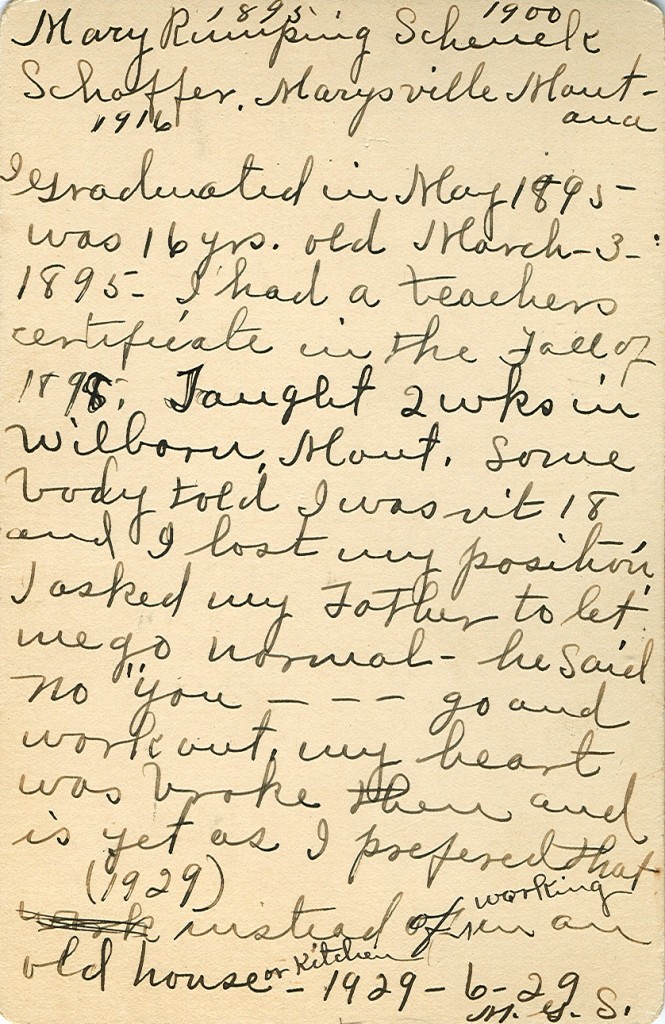 1895 1900
Mary Rumping Schenck
Schaffer. Marysville Mont-
1916 ana
I graduated in May 1895-
was 16 yrs. old March-3-
1895- I had a teachers
certificate in the Fall of
1895. Taught 2 wks in
Wilborn, Mont. Some
body told I was n't 18
and I lost my position,
I asked my Father to let
me go normal - he said
no "you - - - - go and
work out, my heart
was broke then and
is yet as I prefered that
(1929)
instead of working in an
old house or kitchen - 1929-6-29
M. S. S.